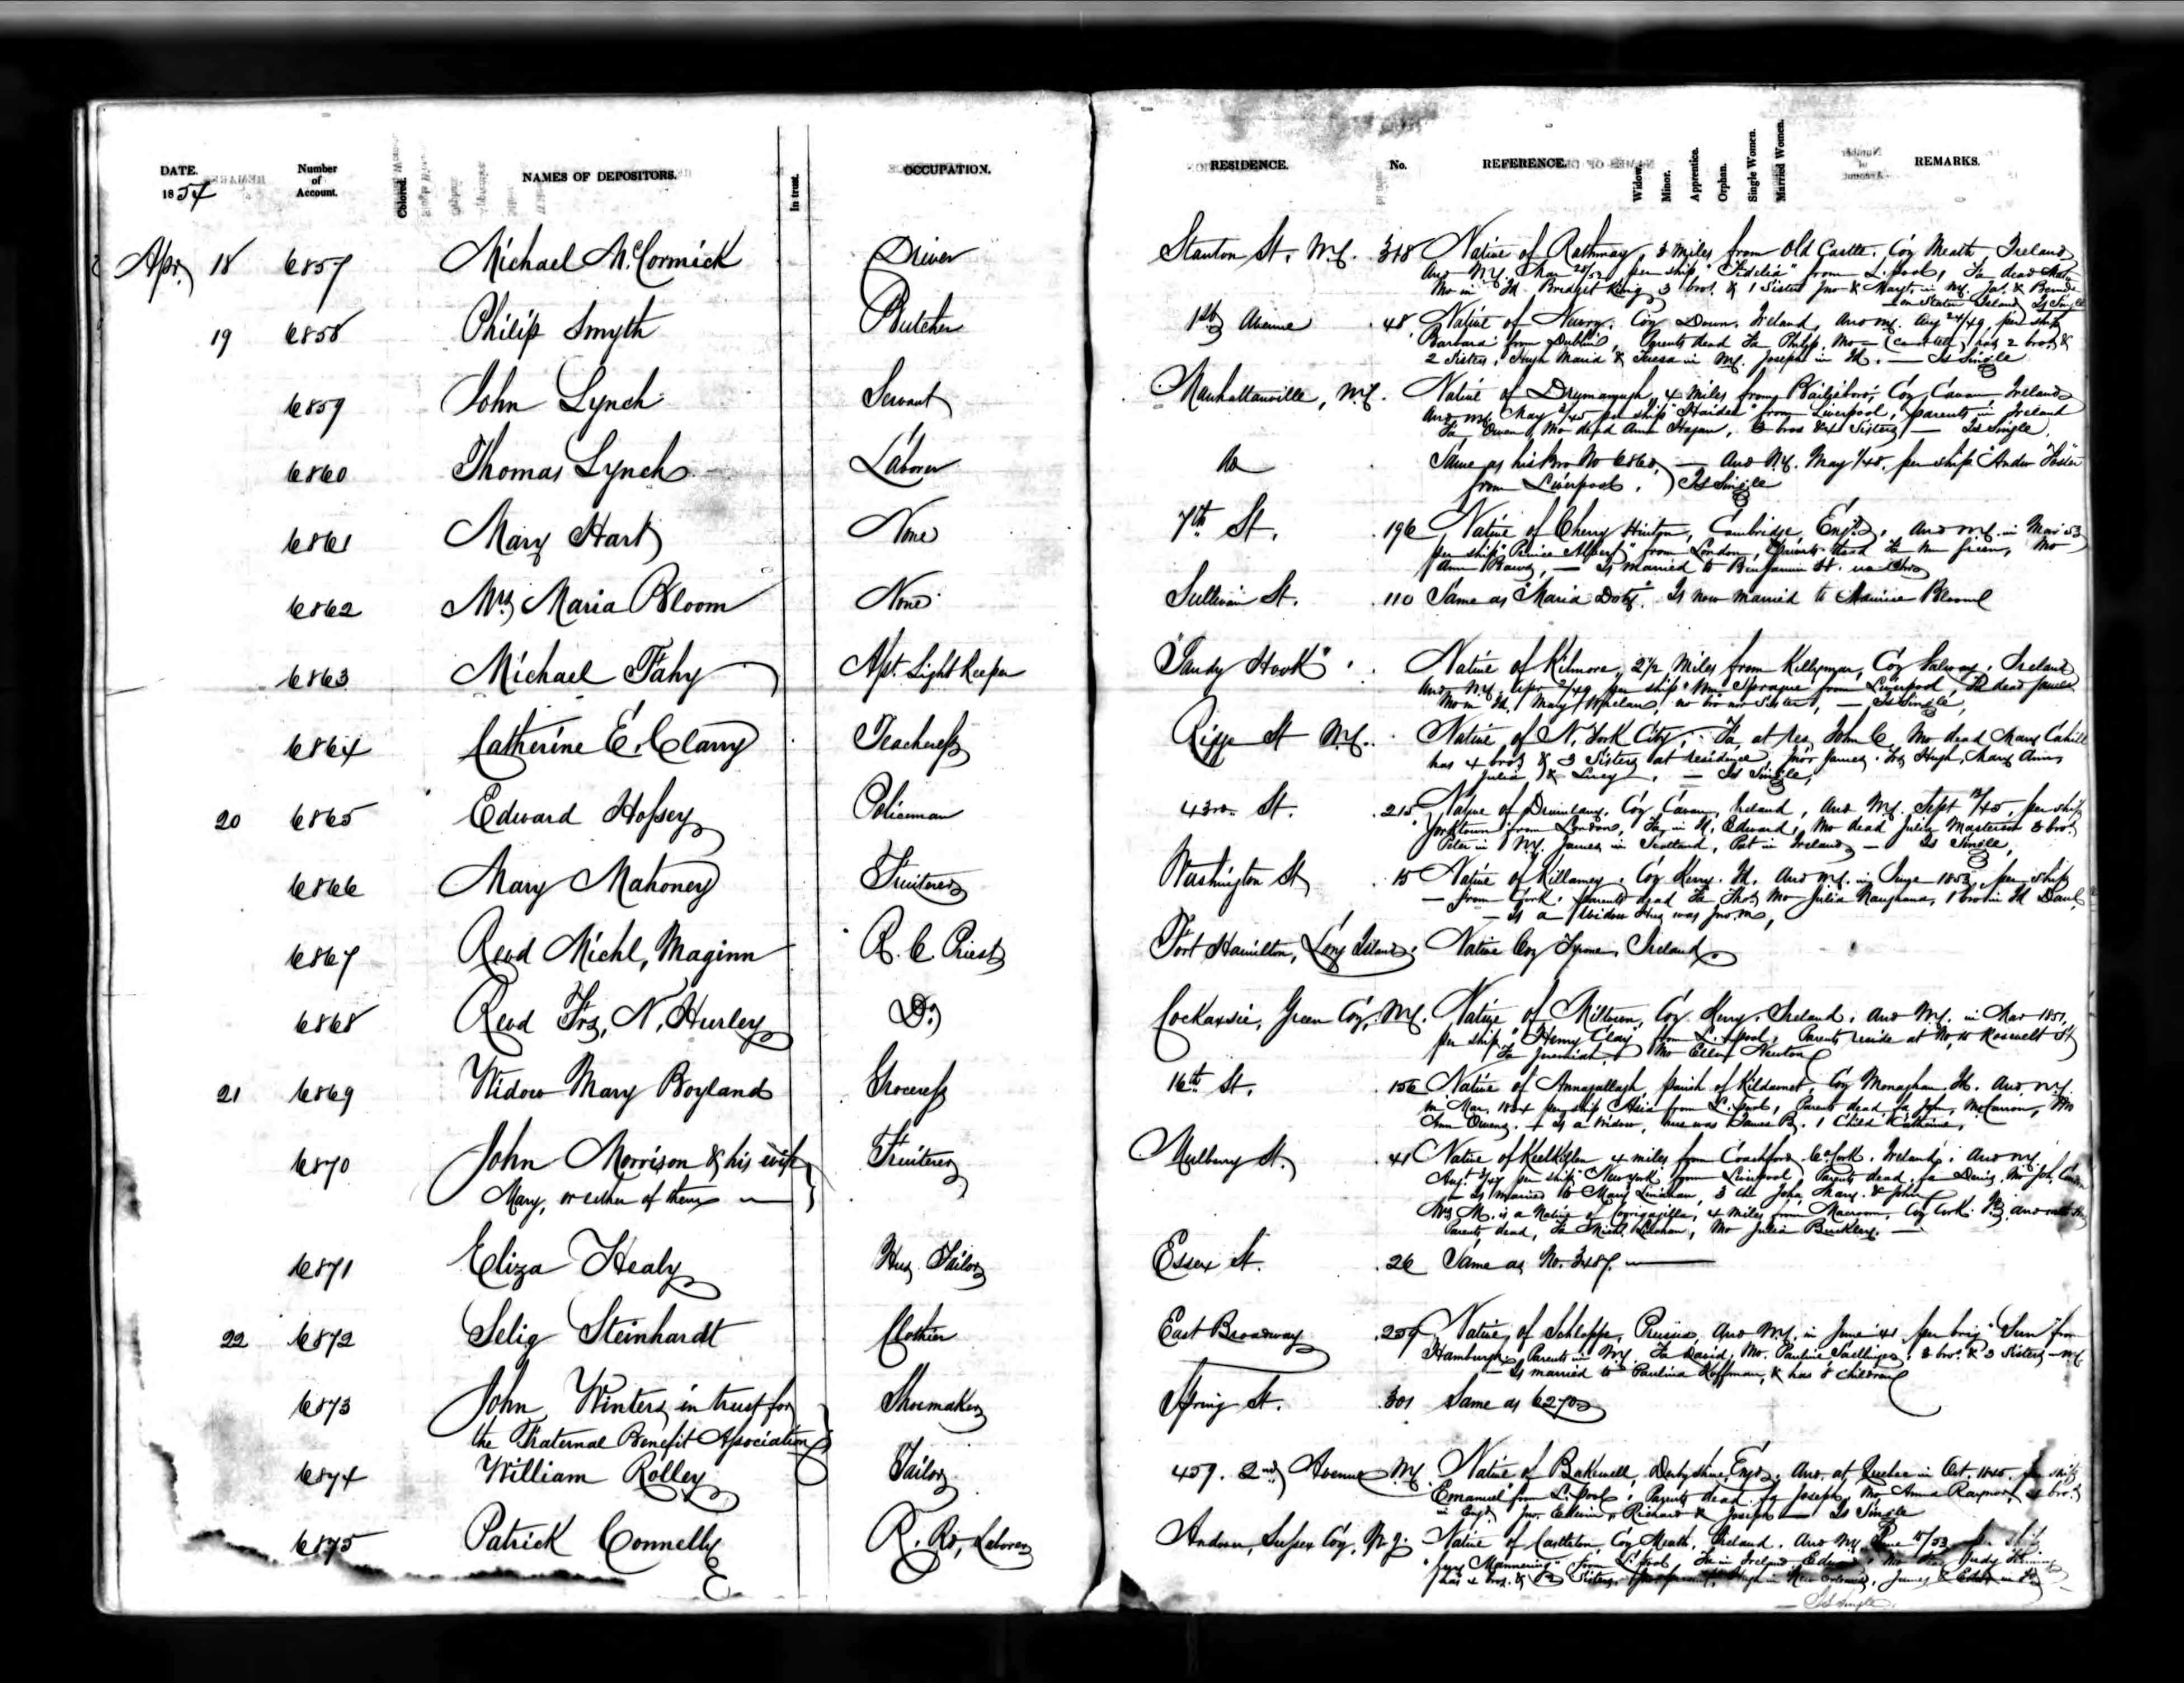 DATE. Number of Account. Colored. NAMES OF DEPOSITORS. In trust. OCCUPATION. RESIDENCE. No. REFERENCE. Widow. Minor. Apprentice. Orphan. Single Women. Married Women. REMARKS.
1854
Apr. 18 6857 Michael McCormick Driver Stanton St. N.Y. 318 Native of Rathmay, 3 miles from Old Castle, Coy Meath, Ireland
Arrd N.Y. Mar 28/52 per ship "Fidelia" from L.pool, Fa dead
Mo in Id. Bridget King, 3 bros. & 1 Sister Jno & Margt. in N.Y. Jas. &
on Staten Island Is Single
19 6858 Philip Smyth Butcher 1st Avenue 48 Native of Newry, Coy Down, Ireland, Arrd N.Y. Aug 24/49, per ship
Barbara from Dublin, Parents dead Fa Philip, Mo — (cant tell) has 2 bros. &
2 Sisters, Hugh Maria & Teresa in N.Y. Joseph in Id. — Is Single
6859 John Lynch Servant Manhattanville, N.Y. Native of 4 miles from Coy Cavan Ireland
Arrd N.Y. May per ship from Liverpool, parents in Ireland
Fa Owen, Mo dead Ann Hagan, 3 bros & 4 Sisters — Is Single.
6860 Thomas Lynch Laborer do Same as his bro No 6860. — Arrd N.Y. May 1/48, per ship "Andw Foster"
from Liverpool. Is Single
6861 Mary Hart None 7th St. 196 Native of Cherry Hinton, Cambridge, Engd. Arrd N.Y. in Mar 53
per ship "Prince Albert" from London, Parents dead Fa Wm Green, Mo
Ann — Is married to Benjamin H. no
6862 Mrs Maria Bloom None Sullivan St. 110 Same as "Maria Doty". Is now married to Maurice Bloom
6863 Michael Fahy Asst. Light Keeper "Sandy Hook" Native of Kilmore, 2 1/2 Miles from Coy Galway, Ireland
Arrd N.Y. Apr 2/49 per ship "Wm. Sprague" from Liverpool, Fa dead James
Mo in Id. Mary Whelan, no bro nor Sister, — Is Single,
6864 Catherine E. Clarry Teacheress Ridge St N.Y. Native of N. York City, Fa at res John C. Mo dead Mary Cahill
has 4 bros & 3 Sisters at residence, James Hugh, Mary Ann,
Julia & Lucy. — Is Single,
20 6865 Edward Hossey Policeman 43rd St. 215 Native of Coy Cavan, Ireland, Arrd N.Y. Sept per ship
Yorktown from London, Fa in Id. Edward, Mo dead Julia Masterson 3 bro.
Peter in N.Y. James in Scotland, Pat in Ireland — Is Single,
6866 Mary Mahoney Fruiterer Washington St 15 Native of Killarney, Coy Kerry, Id. Arrd N.Y. in June 1853, per ship
— from Cork, parents dead Fa Thos. Mo Julia 1 bro in Id
— Is a Widow Hus was Jno. M,
6867 Revd Michl, Maginn R. C. Priest Fort Hamilton, Long Island, Native Coy Tyrone, Ireland
6868 Revd Frs, N, Hurley Do. Cockaxsie, Green Coy, N.Y. Native of Coy Kerry, Ireland, Arrd N.Y. in Mar 1851,
per ship "Henry Clay" from L.pool, Parents reside at No, 10 Roosevelt St
Fa Jeremiah Mo Ellen
21 6869 Widow Mary Boyland Groceress 16th St. 156 Native of parish of Coy Monaghan Id. Arrd N.Y.
in Mar. 1834 per ship Asia from L.pool, Parents dead, fa John McCarron, Mo
Ann Owens. Is a Widow, hus was James B. 1 Child Catherine,
6870 John Morrison & his wife Fruiterer Mulberry St. 41 Native of 4 miles from Coachford, Co. Cork, Ireland, Arrd N.Y.
Mary, or either of them Aug. per ship "New York" from Liverpool Parents dead, fa
Is married to Mary 3 ch John, Mary & John
Mrs M. is a Native of 4 miles from Macroom, Coy Cork Id,
Parents dead, Fa Michl. Mo Julia Buckley. —
6871 Eliza Healy Hus Tailor Essex St. 26 Same as No. 3487.
22 6872 Selig Steinhardt Clothier East Broadway 259 Native of Schloppe, Prussia, Arrd N.Y. in June 41 per brig "Sun" from
Hamburgh, Parents in N.Y. Fa David, Mo. Pauline 3 bro. & 3 Sisters — N.Y.
— Is married to Paulina Koffman, & has 8 children
6873 John Winters, in trust for Shoemaker Spring St. 301 Same as 6270
the Fraternal Benefit Association
6874 William Rolley Tailor 459. 2nd Avenue N.Y. Native of Bakewell, Derbyshire, Engd. Arrd. at Quebec in Oct. per ship
Emanuel from L.pool, Parents dead. fa Joseph, Mo Anna Raynor, bro.
in Engd. Jno. Edwin, Richard & Joseph — Is Single
6875 Patrick Connelly R. Rd, Laborer Andover, Sussex Coy, N.J. Native of Castleton, Coy Meath, Ireland, Arrd N.Y. June
"Guy Mannering" from L.pool, Fa in Ireland Edward, Mo Judy
has 4 bros. & Sisters Hugh in New Orleans, James &
— Is Single.